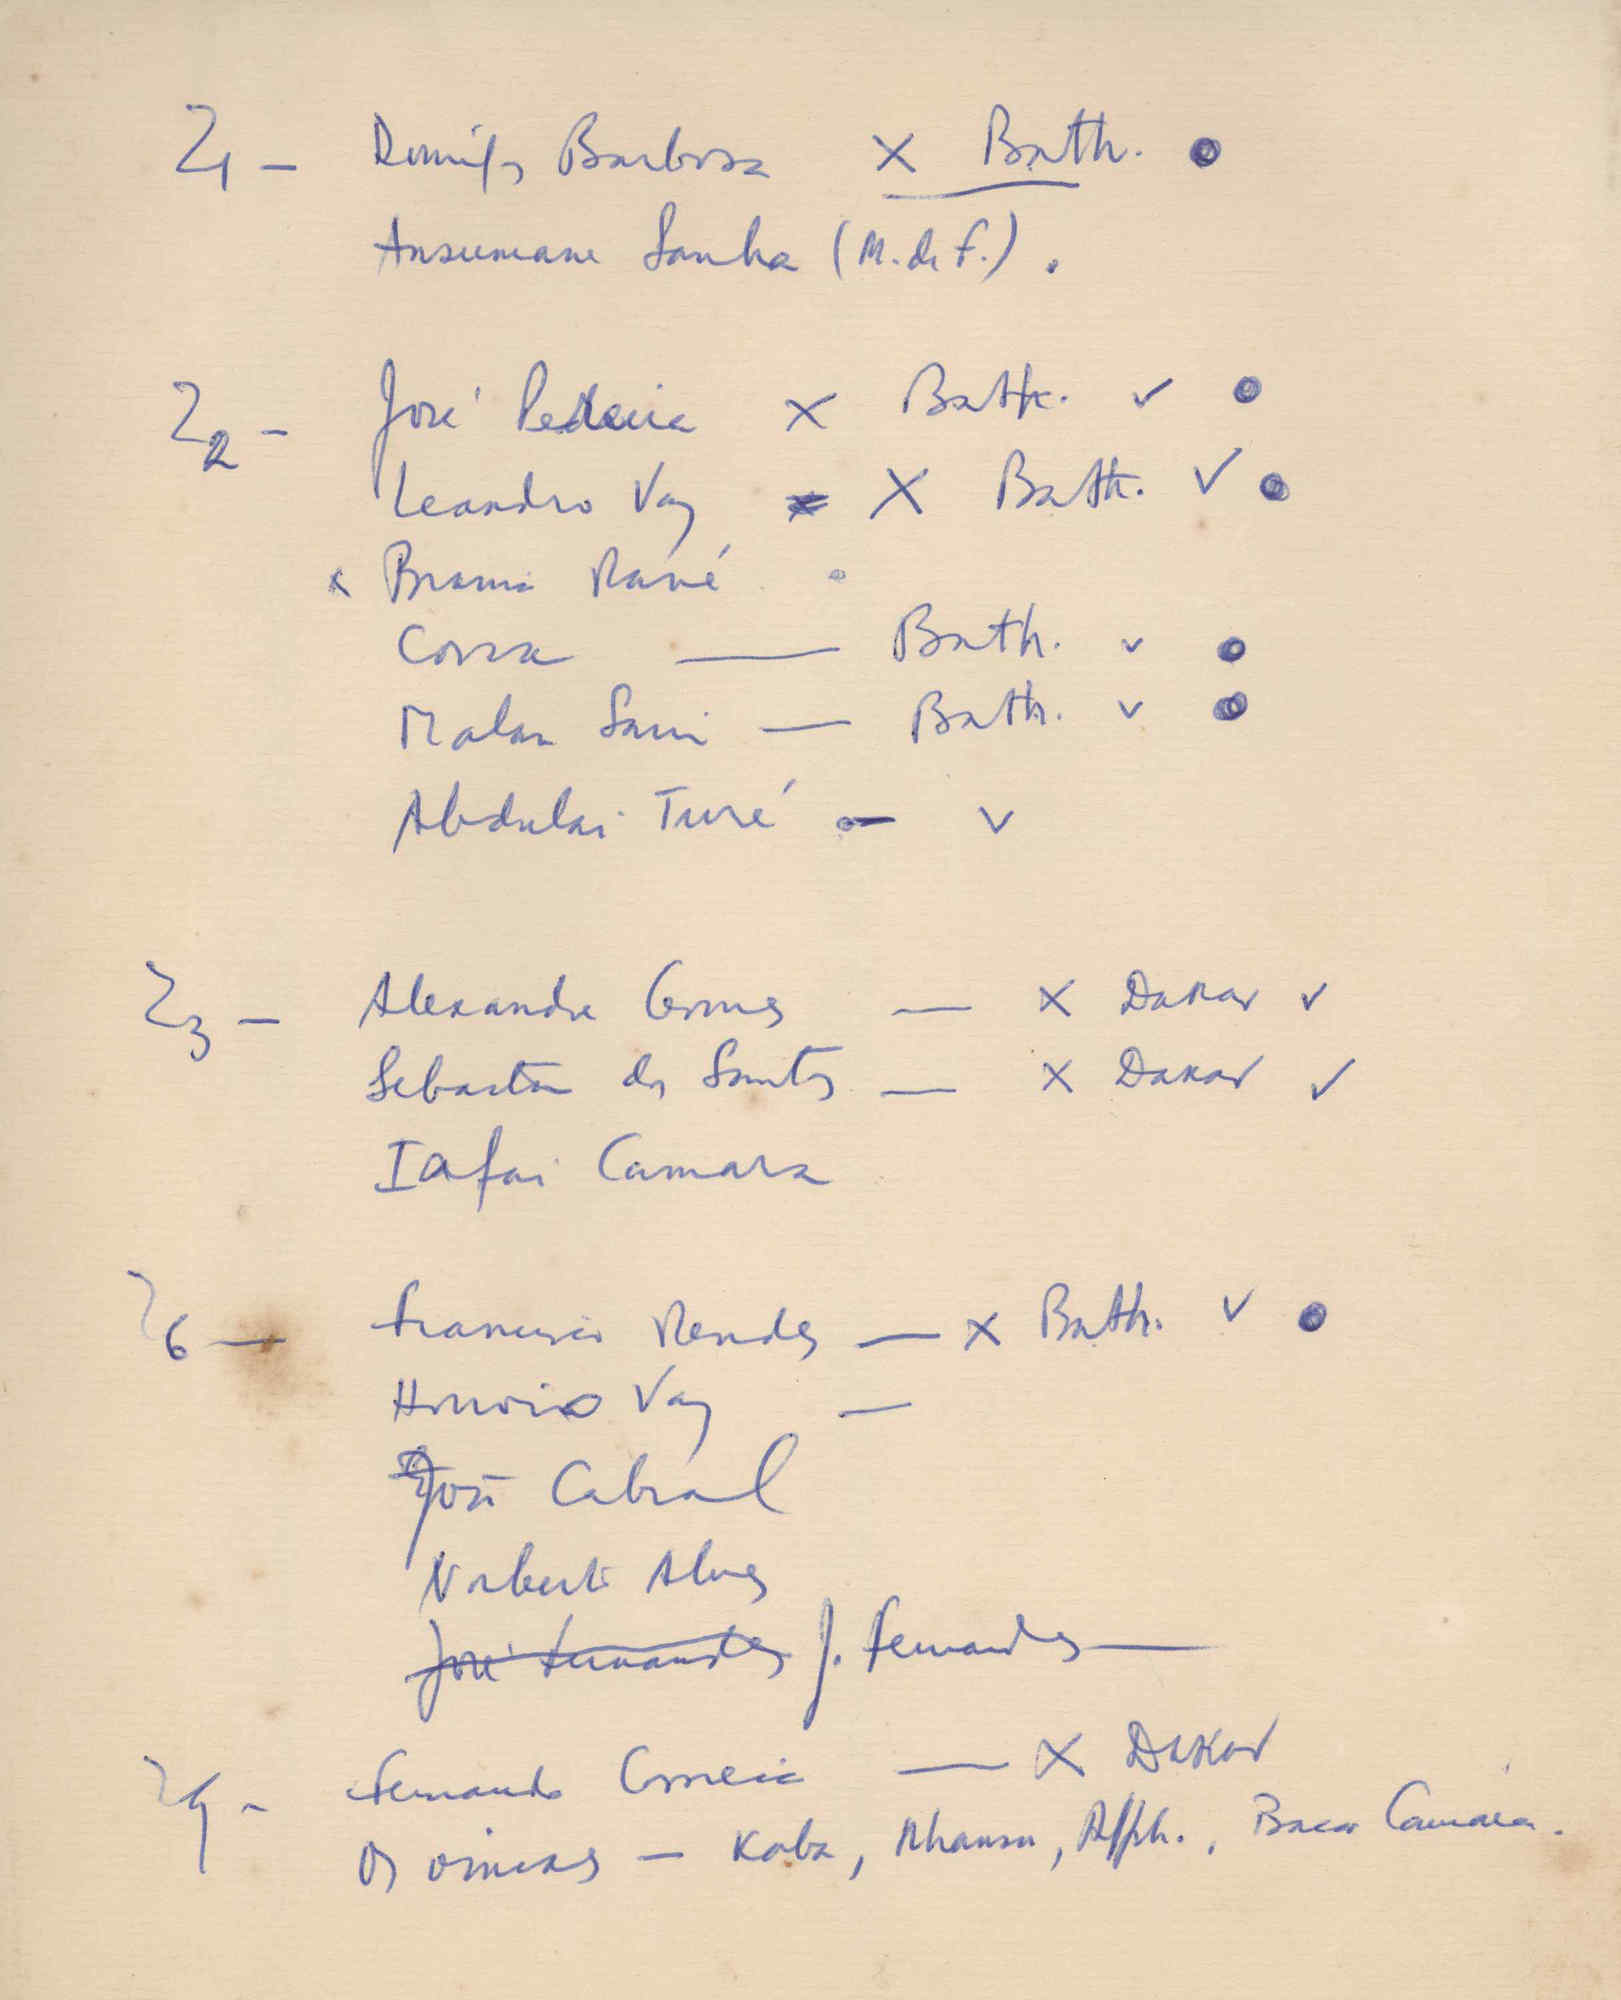 Z1 — Domigs Barbosa X Bath. ●
Ansumane Sanha (M. de F.) .
Z2 — José Pedreira X Bath. ✓ ●
Leandro Vaz X Bath. ✓ ●
x Braima Mané
Corra — Bath. ✓ ●
Malan Sani — Bath. ✓ ●
Abdulai Turé — ✓
Z3 — Alexandre Gomes — X Dakar ✓
Sebastião dos Santos — X Dakar ✓
Iafai Camara
Z6 — Francisco Mendes — X Bath. ✓ ●
Honorio Vaz —
José Cabral
Norberto Alves
José Fernandes J. Fernandes —
Z9 — Fernando Correia — X Dakar
Os — Koba, Nhansu, , Bacar Camará.